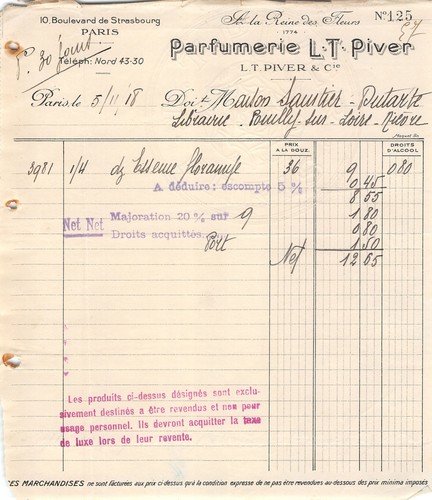 10, Boulevard de Strasbourg
PARIS
Téléph: Nord 43-30
A la Reine des Fleurs
1774
Nº 125
Parfumerie L.T. Piver
L.T. PIVER & Cie
Paris, le 5/11/18 Doit Maison Saustier - Dutarte
Librairie - Pouilly-sur-Loire, Nièvre
PRIX A LA DOUZ. DROITS D'ALCOOL
3981 1/4 dz Essence floramye 36 9 080
A déduire: escompte 5 % 0 45
8 55
Net Net Majoration 20 % sur 9 1 80
Droits acquittés. 0 80
Port 1 50
Net 12 65
Les produits ci-dessus désignés sont exclu-
sivement destinés a être revendus et non pour
usage personnel. Ils devront acquitter la taxe
de luxe lors de leur revente.
ES MARCHANDISES ne sont facturées aux prix ci-dessus qu'à la condition expresse de ne pas être revendues au-dessous des prix minima imposés